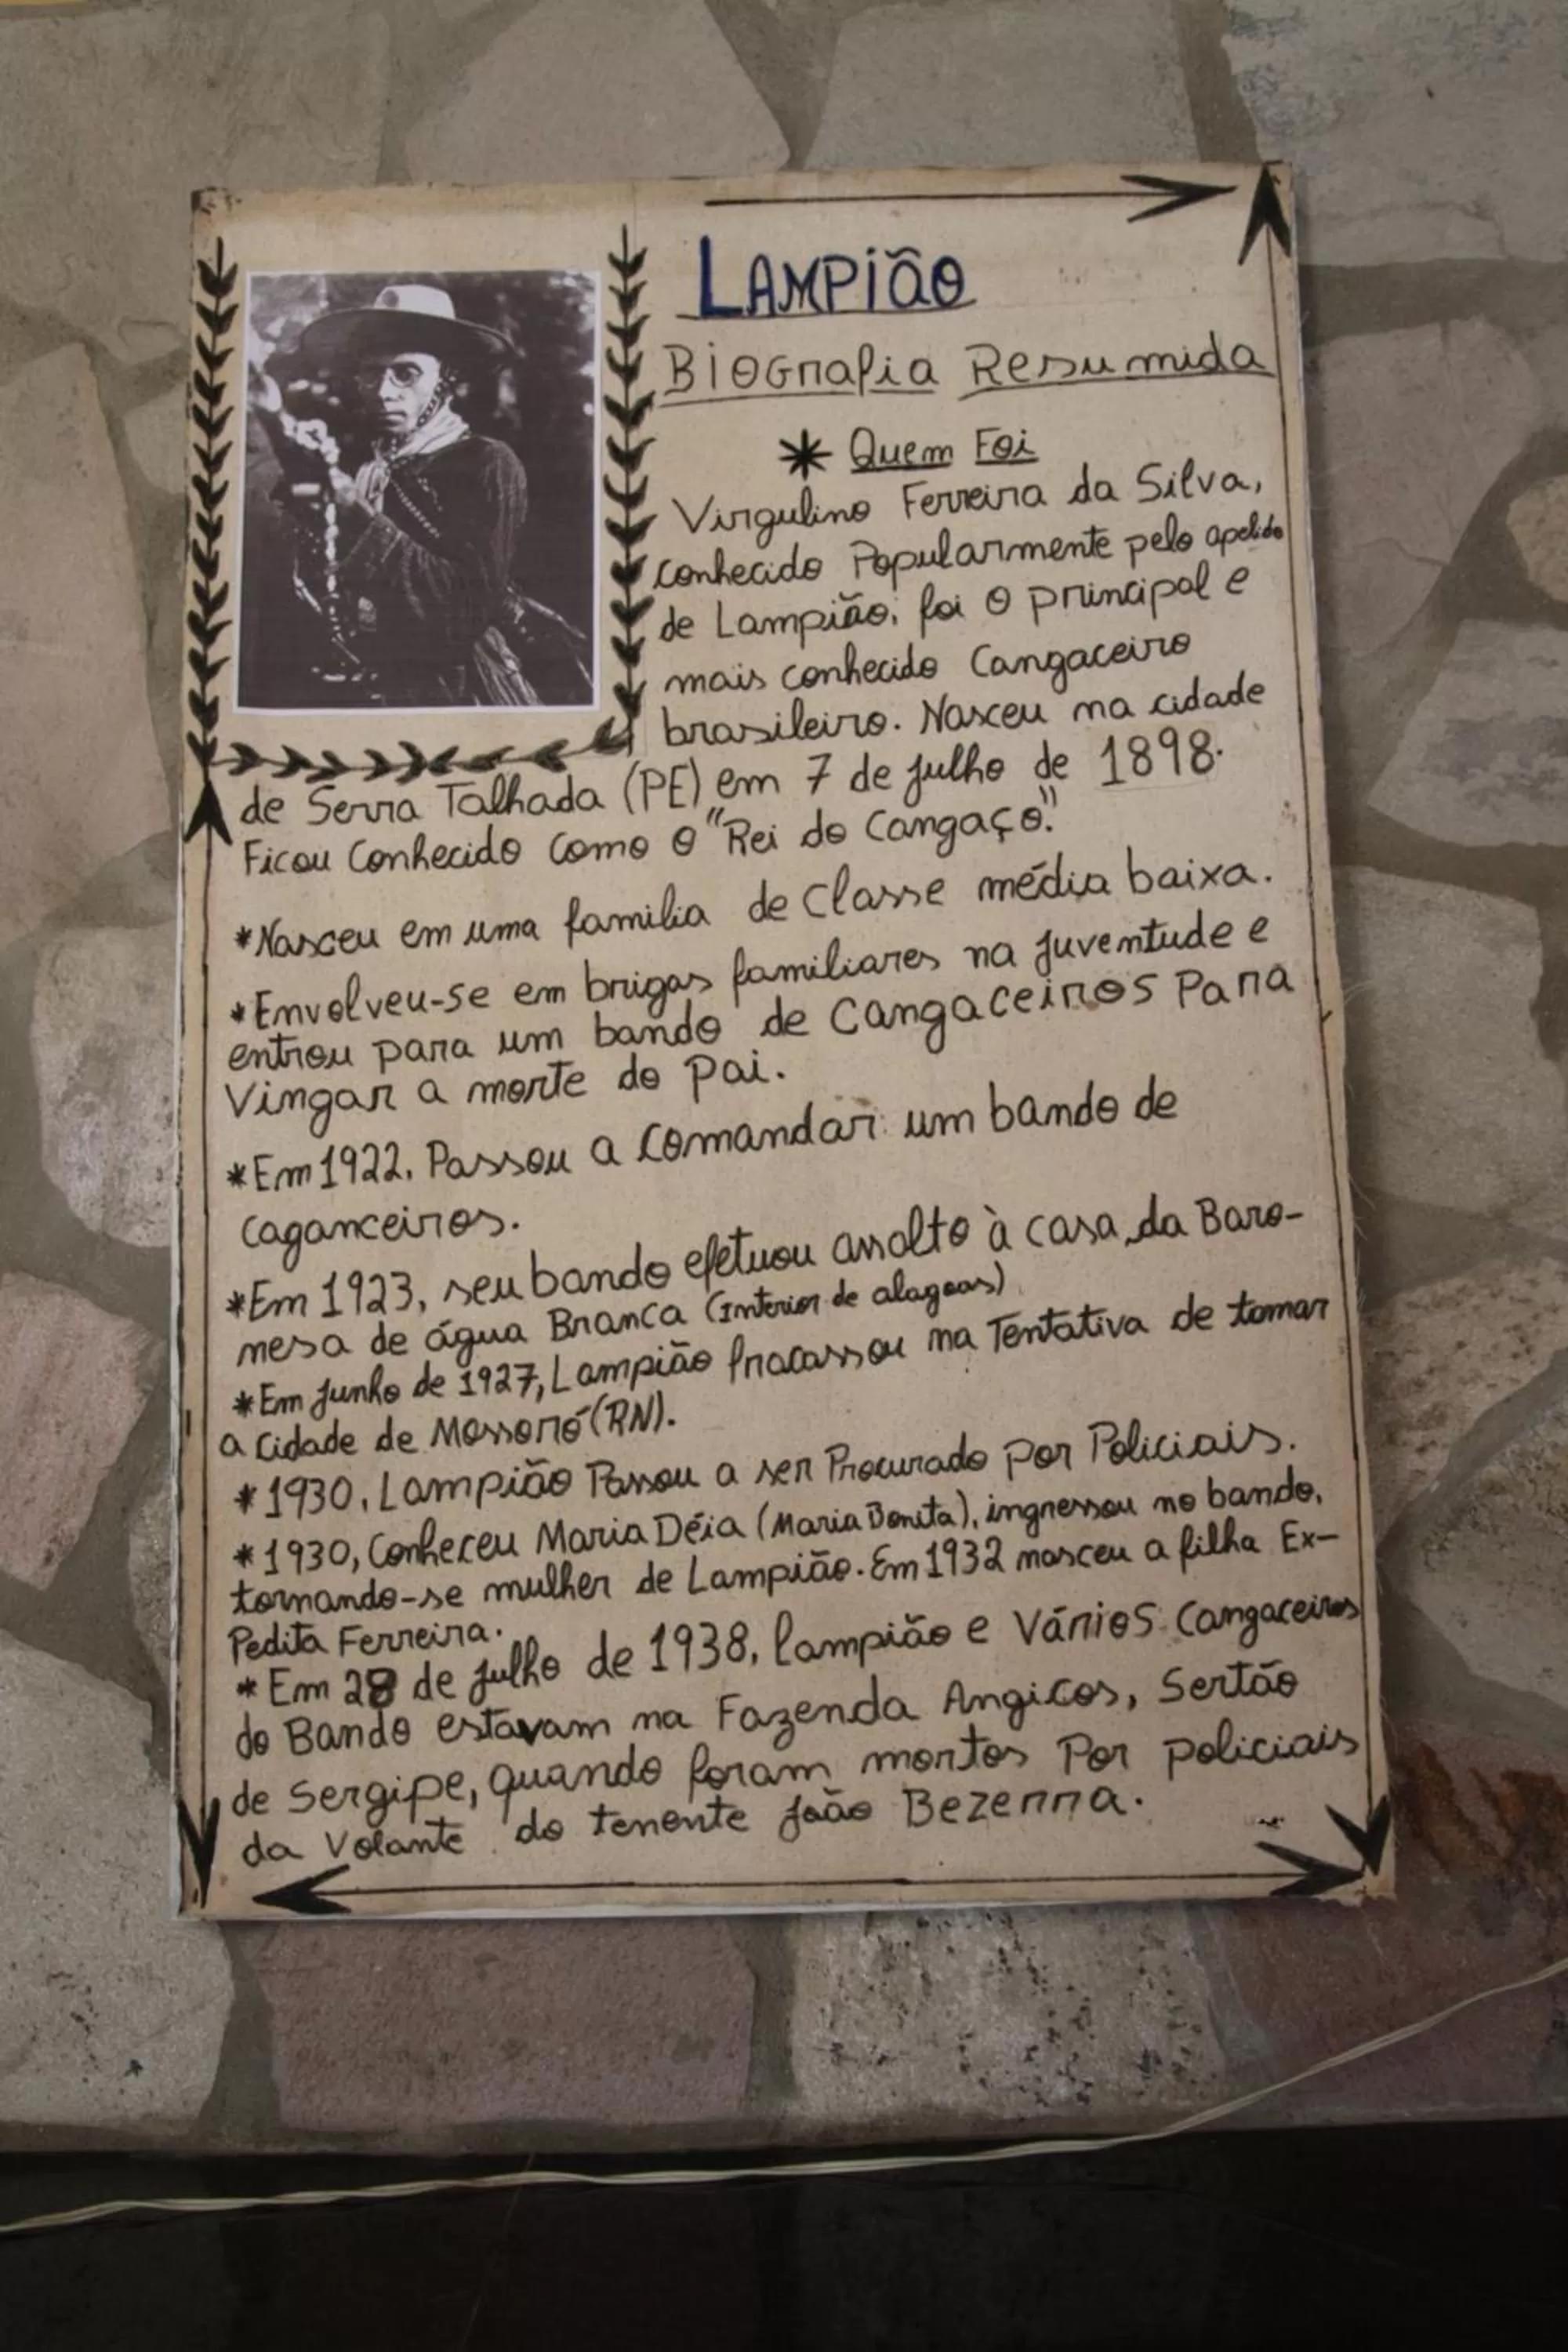 LAMPIÃO
BIOGrafia Resumida
* Quem Foi
Virgulino Ferreira da Silva,
conhecido Popularmente pelo apelido
de Lampião, foi o principal e
mais conhecido Cangaceiro
brasileiro. Nasceu na cidade
de Serra Talhada (PE) em 7 de julho de 1898.
Ficou Conhecido Como o "Rei do Cangaço."
*Nasceu em uma familia de Classe média baixa.
*Envolveu-se em brigas familiares na juventude e
entrou para um bando de Cangaceiros Para
Vingar a morte do Pai.
*Em 1922. Passou a Comandar um bando de
caganceiros.
*Em 1923, seu bando efetuou assalto à casa da Baro-
nesa de água Branca (Interior de alagoas)
*Em junho de 1927, Lampião fracassou na Tentativa de tomar
a cidade de Mossoró (RN).
*1930, Lampião Passou a ser Procurado por Policiais.
*1930, Conheceu Maria Déia (Maria Bonita), ingressou no bando,
tornando-se mulher de Lampião. Em 1932 nasceu a filha Ex-
Pedita Ferreira.
*Em 28 de julho de 1938, Lampião e Vários Cangaceiros
do Bando estavam na Fazenda Angicos, Sertão
de Sergipe, quando foram mortos Por policiais
da Volante do tenente João Bezerra.